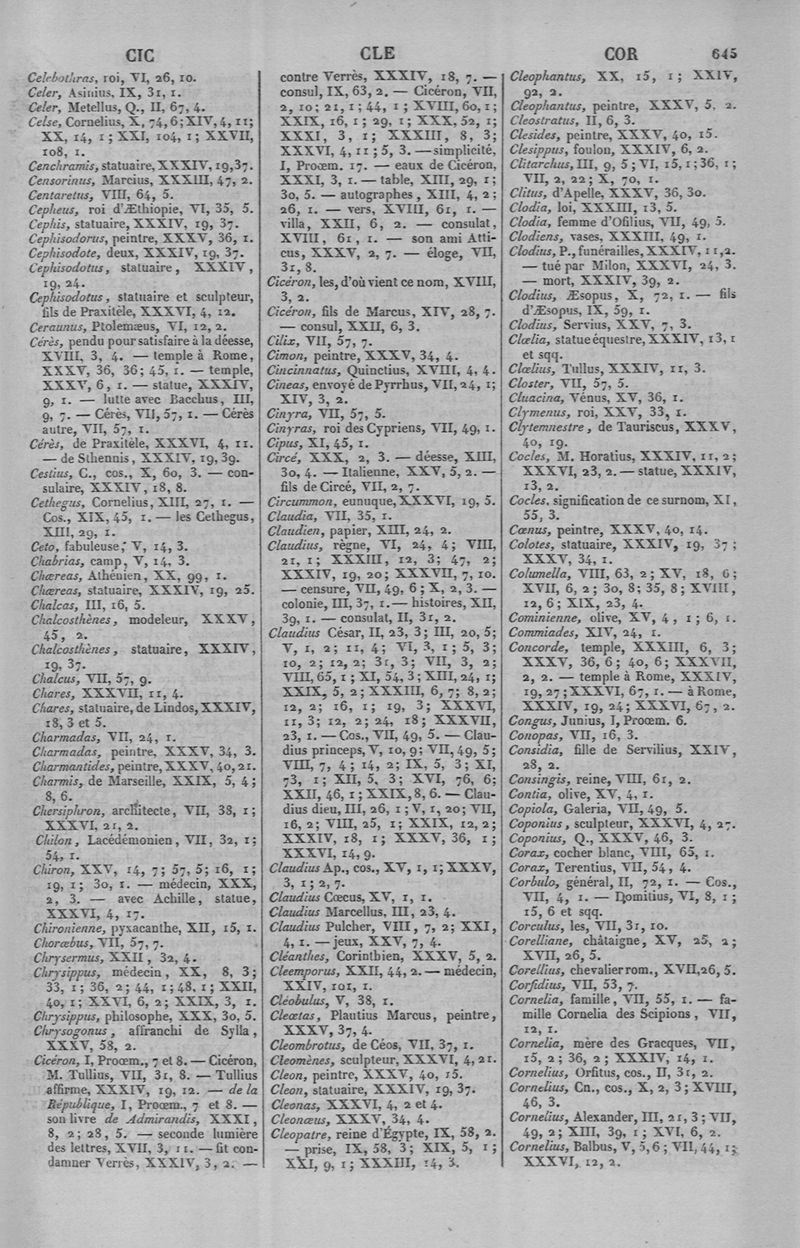 CIC
CLE
COR
645
Celebothras, roi, VI, 26, 10.
Celer, Asinius, IX, 31, 1.
Celer, Metellus, Q., II, 67, 4.
Celse, Cornelius, X, 74, 6; XIV, 4, 11;
XX, 14, 1; XXI, 104, 1; XXVII,
108, 1.
Cenchramis, statuaire, XXXIV, 19, 37.
Censorinus, Marcius, XXXIII, 47, 2.
Centaretus, VIII, 64, 5.
Cepheus, roi d'Æthiopie, VI, 35, 5.
Cephis, statuaire, XXXIV, 19, 37.
Cephisodorus, peintre, XXXV, 36, 1.
Cephisodote, deux, XXXIV, 19, 37.
Cephisodotus, statuaire, XXXIV,
19, 24.
Cephisodotus, statuaire et sculpteur,
fils de Praxitèle, XXXVI, 4, 12.
Ceraunus, Ptolemæus, VI, 12, 2.
Cérès, pendu pour satisfaire à la déesse,
XVIII, 3, 4. — temple à Rome,
XXXV, 36, 36; 45, 1. — temple,
XXXV, 6, 1. — statue, XXXIV,
9, 1. — lutte avec Bacchus, III,
9, 7. — Cérès, VII, 57, 1. — Cérès
autre, VII, 57, 1.
Cérès, de Praxitèle, XXXVI, 4, 11.
— de Sthennis, XXXIV, 19, 39.
Cestius, C., cos., X, 60, 3. — con-
sulaire, XXXIV, 18, 8.
Cethegus, Cornelius, XIII, 27, 1. —
Cos., XIX, 45, 1. — les Cethegus,
XIII, 29, 1.
Ceto, fabuleuse, V, 14, 3.
Chabrias, camp, V, 14, 3.
Chæreas, Athénien, XX, 99, 1.
Chæreas, statuaire, XXXIV, 19, 25.
Chalcas, III, 16, 5.
Chalcosthènes, modeleur, XXXV,
45, 2.
Chalcosthènes, statuaire, XXXIV,
19, 37.
Chalcus, VII, 57, 9.
Chares, XXXVII, 11, 4.
Chares, statuaire, de Lindos, XXXIV,
18, 3 et 5.
Charmadas, VII, 24, 1.
Charmadas, peintre, XXXV, 34, 3.
Charmantides, peintre, XXXV, 40, 21.
Charmis, de Marseille, XXIX, 5, 4;
8, 6.
Chersiphron, architecte, VII, 38, 1;
XXXVI, 21, 2.
Chilon, Lacédémonien, VII, 32, 1;
54, 1.
Chiron, XXV, 14, 7; 57, 5; 16, 1;
19, 1; 30, 1. — médecin, XXX,
2, 3. — avec Achille, statue,
XXXVI, 4, 17.
Chironienne, pyxacanthe, XII, 15, 1.
Choræbus, VII, 57, 7.
Chrysermus, XXII, 32, 4.
Chrysippus, médecin, XX, 8, 3;
33, 1; 36, 2; 44, 1; 48, 1; XXII,
40, 1; XXVI, 6, 2; XXIX, 3, 1.
Chrysippus, philosophe, XXX, 30, 5.
Chrysogonus, affranchi de Sylla,
XXXV, 58, 2.
Cicéron, I, Procem., 7 et 8. — Cicéron,
M. Tullius, VII, 31, 8. — Tullius
affirme, XXXIV, 19, 12. — de la
République, I, Procem., 7 et 8. —
son livre de Admirandis, XXXI,
8, 2; 28, 5. — seconde lumière
des lettres, XVII, 3, 11. — fit con-
damner Verrès, XXXIV, 3, 2. —
contre Verrès, XXXIV, 18, 7. —
consul, IX, 63, 2. — Cicéron, VII,
2, 10; 21, 1; 44, 1; XVIII, 60, 1;
XXIX, 16, 1; 29, 1; XXX, 52, 1;
XXXI, 3, 1; XXXIII, 8, 3;
XXXVI, 4, 11; 5, 3. — simplicité,
I, Procem. 17. — eaux de Cicéron,
XXXI, 3, 1. — table, XIII, 29, 1;
30, 5. — autographes, XIII, 4, 2;
26, 1. — vers, XVIII, 61, 1. —
villa, XXII, 6, 2. — consulat,
XVIII, 61, 1. — son ami Atti-
cus, XXXV, 2, 7. — éloge, VII,
31, 8.
Cicéron, les, d'où vient ce nom, XVIII,
3, 2.
Cicéron, fils de Marcus, XIV, 28, 7.
— consul, XXII, 6, 3.
Cilix, VII, 57, 7.
Cimon, peintre, XXXV, 34, 4.
Cincinnatus, Quinctius, XVIII, 4, 4.
Cineas, envoyé de Pyrrhus, VII, 24, 1;
XIV, 3, 2.
Cinyra, VII, 57, 5.
Cinyras, roi des Cypriens, VII, 49, 1.
Cipus, XI, 45, 1.
Circé, XXX, 2, 3. — déesse, XIII,
30, 4. — Italienne, XXV, 5, 2. —
fils de Circé, VII, 2, 7.
Circummon, eunuque, XXXVI, 19, 5.
Claudia, VII, 35, 1.
Claudien, papier, XIII, 24, 2.
Claudius, règne, VI, 24, 4; VIII,
21, 1; XXXIII, 12, 3; 47, 2;
XXXIV, 19, 20; XXXVII, 7, 10.
— censure, VII, 49, 6; X, 2, 3. —
colonie, III, 37, 1. — histoires, XII,
39, 1. — consulat, II, 31, 2.
Claudius César, II, 23, 3; III, 20, 5;
V, 1, 2; 11, 4; VI, 3, 1; 5, 3;
10, 2; 12, 2; 31, 3; VII, 3, 2;
VIII, 65, 1; XI, 54, 3; XIII, 24, 1;
XXIX, 5, 2; XXXIII, 6, 7; 8, 2;
12, 2; 16, 1; 19, 3; XXXVI,
11, 3; 12, 2; 24, 18; XXXVII,
23, 1. — Cos., VII, 49, 5. — Clau-
dius princeps, V, 10, 9; VII, 49, 5;
VIII, 7, 4; 14, 2; IX, 5, 3; XI,
73, 1; XII, 5, 3; XVI, 76, 6;
XXII, 46, 1; XXIX, 8, 6. — Clau-
dius dieu, III, 26, 1; V, 1, 20; VII,
16, 2; VIII, 25, 1; XXIX, 12, 2;
XXXIV, 18, 1; XXXV, 36, 1;
XXXVI, 14, 9.
Claudius Ap., cos., XV, 1, 1; XXXV,
3, 1; 2, 7.
Claudius Cœcus, XV, 1, 1.
Claudius Marcellus, III, 23, 4.
Claudius Pulcher, VIII, 7, 2; XXI,
4, 1. — jeux, XXV, 7, 4.
Cléanthes, Corinthien, XXXV, 5, 2.
Cleemporus, XXII, 44, 2. — médecin,
XXIV, 101, 1.
Cléobulus, V, 38, 1.
Cleœtas, Plautius Marcus, peintre,
XXXV, 37, 4.
Cleombrotus, de Céos, VII, 37, 1.
Cleomènes, sculpteur, XXXVI, 4, 21.
Cleon, peintre, XXXV, 40, 15.
Cleon, statuaire, XXXIV, 19, 37.
Cleonas, XXXVI, 4, 2 et 4.
Cleonæus, XXXV, 34, 4.
Cleopatre, reine d'Égypte, IX, 58, 2.
— prise, IX, 58, 3; XIX, 5, 1;
XXI, 9, 1; XXXIII, 14, 3.
Cleophantus, XX, 15, 1; XXIV,
92, 2.
Cleophantus, peintre, XXXV, 5, 2.
Cleostratus, II, 6, 3.
Clesides, peintre, XXXV, 40, 15.
Clesippus, foulon, XXXIV, 6, 2.
Clitarchus, III, 9, 5; VI, 15, 1; 36, 1;
VII, 2, 22; X, 70, 1.
Clitus, d'Apelle, XXXV, 36, 30.
Clodia, loi, XXXIII, 13, 5.
Clodia, femme d'Ofilius, VII, 49, 5.
Clodiens, vases, XXXIII, 49, 1.
Clodius, P., funérailles, XXXIV, 11, 2.
— tué par Milon, XXXVI, 24, 3.
— mort, XXXIV, 39, 2.
Clodius, Æsopus, X, 72, 1. — fils
d'Æsopus, IX, 59, 1.
Clodius, Servius, XXV, 7, 3.
Clœlia, statue équestre, XXXIV, 13, 1
et sqq.
Clœlius, Tullus, XXXIV, 11, 3.
Closter, VII, 57, 5.
Cluacina, Vénus, XV, 36, 1.
Clymenus, roi, XXV, 33, 1.
Clytemnestre, de Tauriscus, XXXV,
40, 19.
Cocles, M. Horatius, XXXIV, 11, 2;
XXXVI, 23, 2. — statue, XXXIV,
13, 2.
Cocles, signification de ce surnom, XI,
55, 3.
Cœnus, peintre, XXXV, 40, 14.
Colotes, statuaire, XXXIV, 19, 37;
XXXV, 34, 1.
Columella, VIII, 63, 2; XV, 18, 6;
XVII, 6, 2; 30, 8; 35, 8; XVIII,
12, 6; XIX, 23, 4.
Cominienne, olive, XV, 4, 1; 6, 1.
Commiades, XIV, 24, 1.
Concorde, temple, XXXIII, 6, 3;
XXXV, 36, 6; 40, 6; XXXVII,
2, 2. — temple à Rome, XXXIV,
19, 27; XXXVI, 67, 1. — à Rome,
XXXIV, 19, 24; XXXVI, 67, 2.
Congus, Junius, I, Procem. 6.
Conopas, VII, 16, 3.
Considia, fille de Servilius, XXIV,
28, 2.
Consingis, reine, VIII, 61, 2.
Contia, olive, XV, 4, 1.
Copiola, Galeria, VII, 49, 5.
Coponius, sculpteur, XXXVI, 4, 27.
Coponius, Q., XXXV, 46, 3.
Corax, cocher blanc, VIII, 65, 1.
Corax, Terentius, VII, 54, 4.
Corbulo, général, II, 72, 1. — Cos.,
VII, 4, 1. — Domitius, VI, 8, 1;
15, 6 et sqq.
Corculus, les, VII, 31, 10.
Corelliane, châtaigne, XV, 25, 2;
XVII, 26, 5.
Corellius, chevalier rom., XVII, 26, 5.
Corfidius, VII, 53, 7.
Cornelia, famille, VII, 55, 1. — fa-
mille Cornelia des Scipions, VII,
12, 1.
Cornelia, mère des Gracques, VII,
15, 2; 36, 2; XXXIV, 14, 1.
Cornelius, Orfitus, cos., II, 31, 2.
Cornelius, Cn., cos., X, 2, 3; XVIII,
46, 3.
Cornelius, Alexander, III, 21, 3; VII,
49, 2; XIII, 39, 1; XVI, 6, 2.
Cornelius, Balbus, V, 5, 6; VII, 44, 1;
XXXVI, 12, 2.